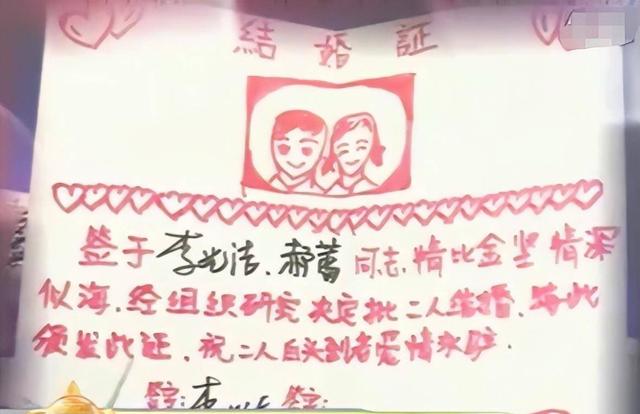 結婚証
签于李光洁、郝蕾同志情比金坚情深
似海，经组织研究决定批二人结婚，特此
颁发此证，祝二人白头到老爱情永驴.
签字：李光洁 签字：